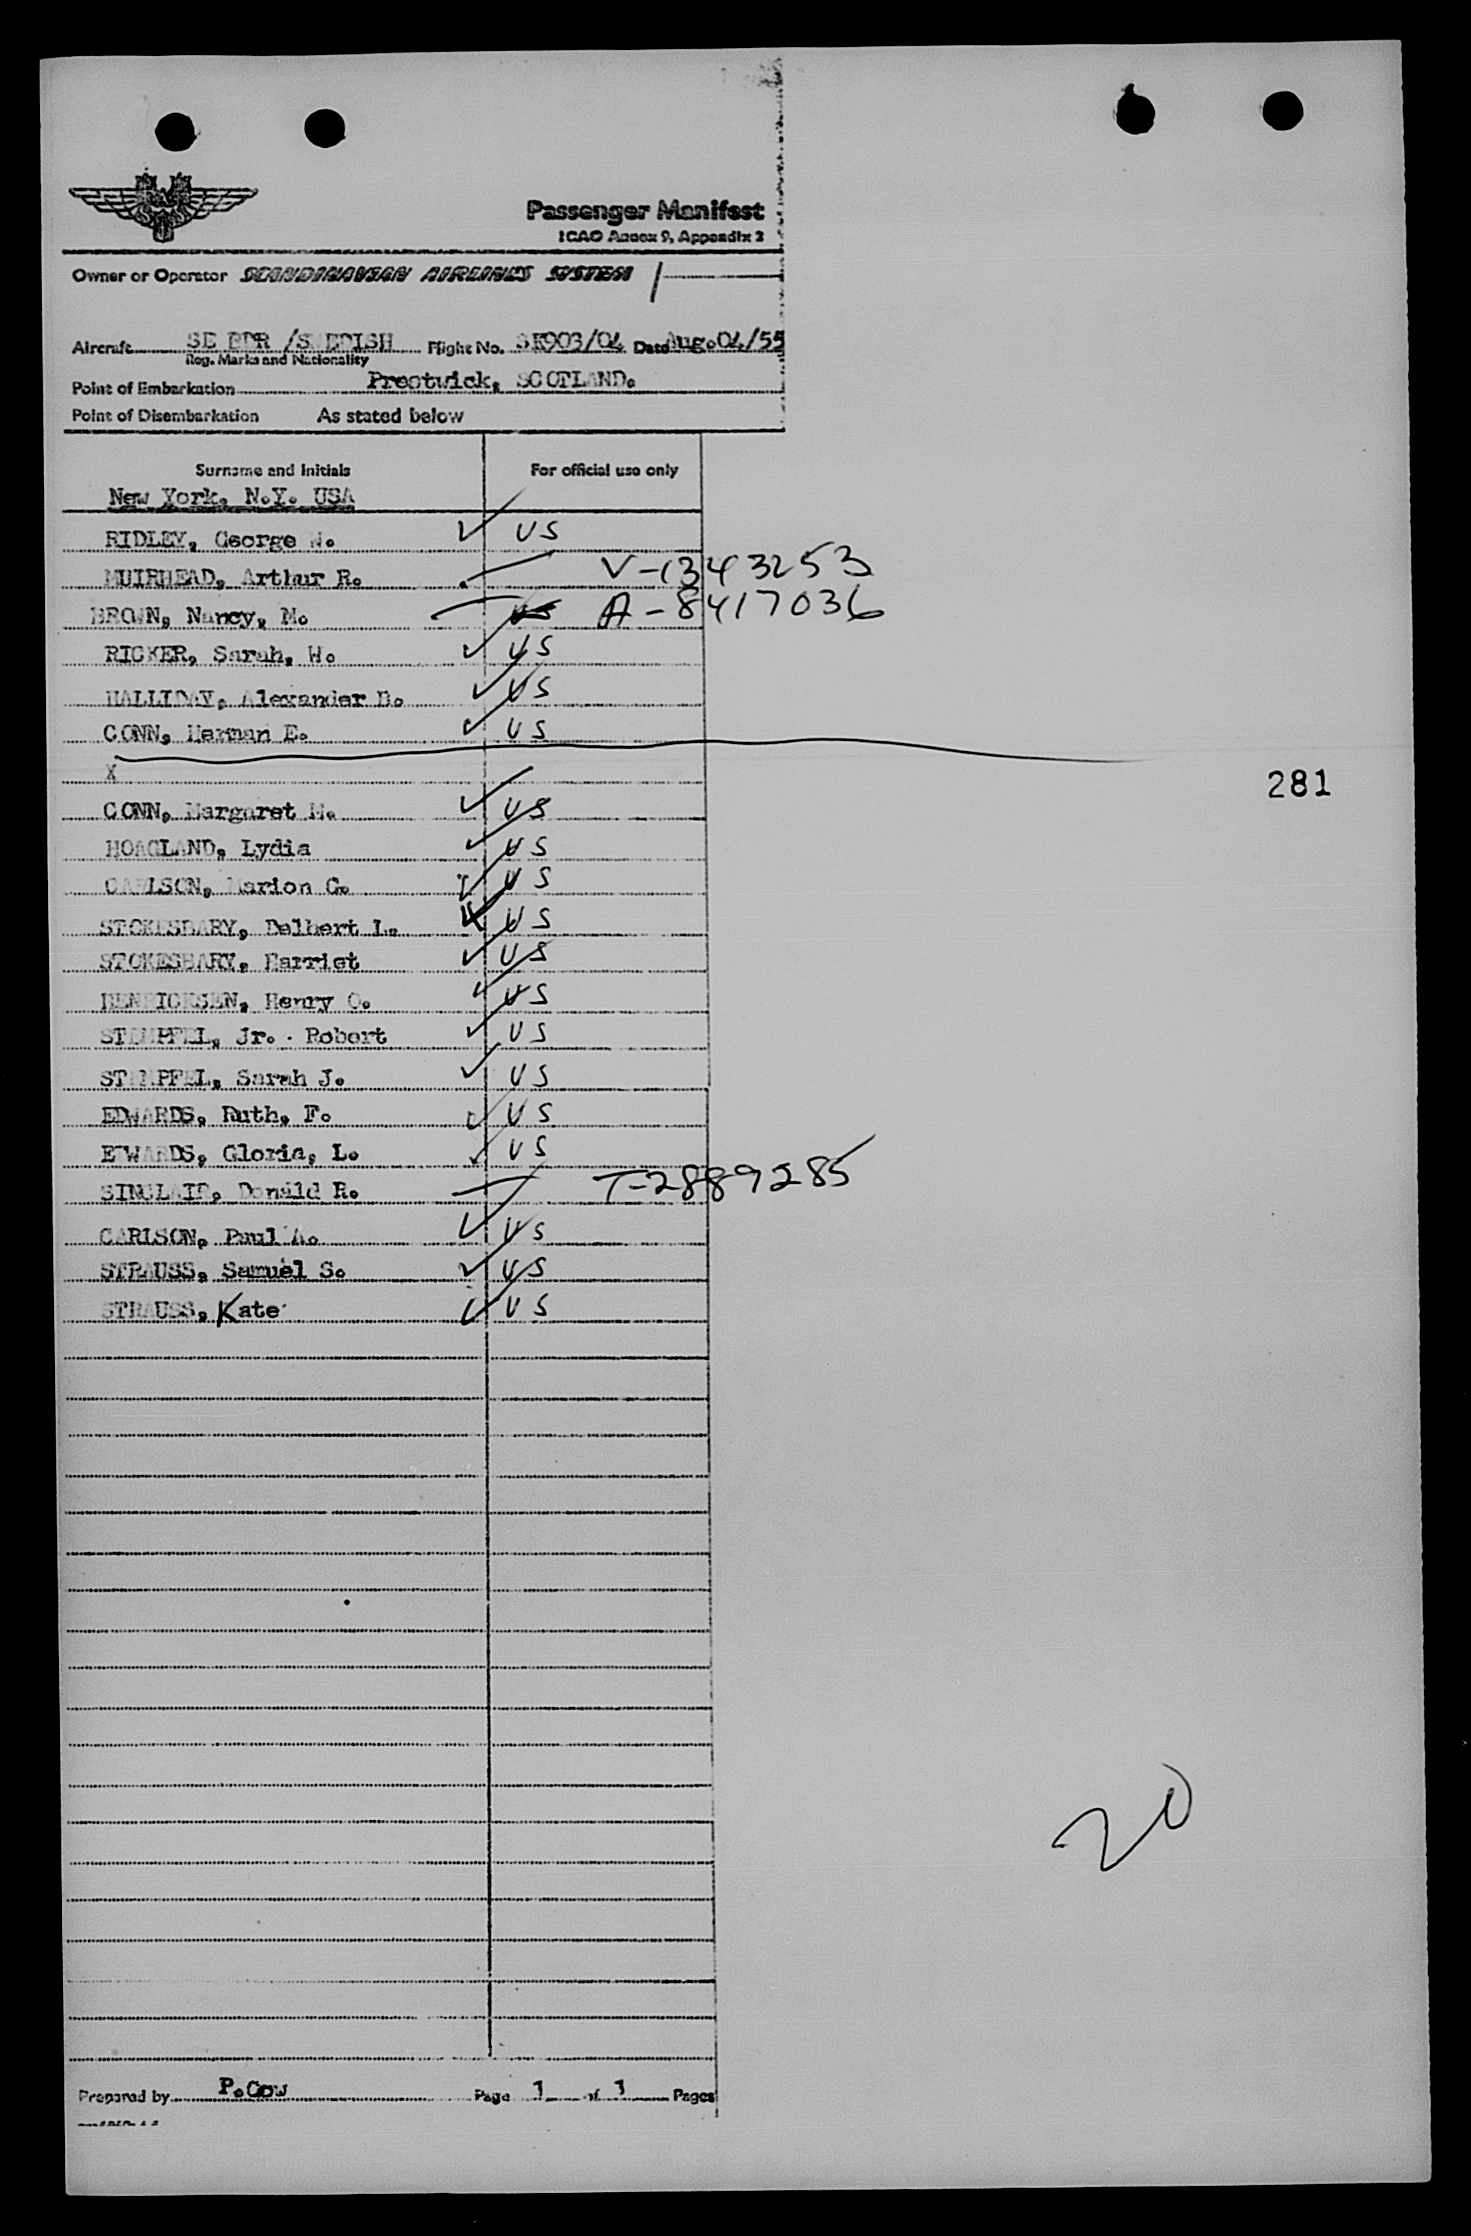 Passenger Manifest
ICAO Annex 9, Appendix 2
Owner or Operator SCANDINAVIAN AIRLINES SYSTEM
Aircraft SE BDR /SWEDISH Flight No. SK903/04 Date Aug.04/55
Reg. Marks and Nationality
Point of Embarkation Prestwick, SCOTLAND.
Point of Disembarkation As stated below
Surname and Initials For official use only
New York, N.Y. USA
RIDLEY, George W. US
MUIRHEAD, Arthur R. V-1343253
BROWN, Nancy, M. US A-8417036
RICKER, Sarah, W. US
HALLIDAY, Alexander B. US
CONN, Herman E. US
X
281
CONN, Margaret M. US
HOAGLAND, Lydia US
CARLSON, Marion G. US
STOKESBARY, Delbert L. US
STOKESBARY, Harriet US
HENRICKSEN, Henry O. US
STEMPFEL, Jr. Robert US
STEMPFEL, Sarah J. US
EDWARDS, Ruth, F. US
EDWARDS, Gloria, L. US
SINCLAIR, Donald R. T-2889285
CARLSON, Paul A. US
STRAUSS, Samuel S. US
STRAUSS, Kate US
20
Prepared by P.Cow Page 1 of 1 Pages